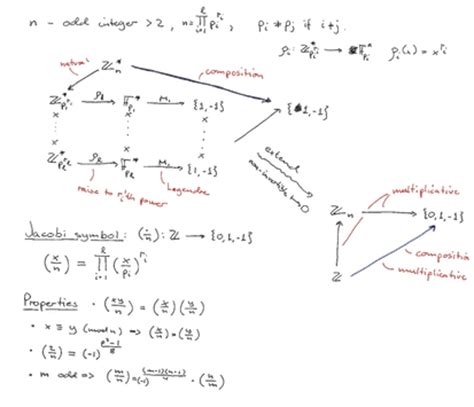 n - odd integer >2, n = ∏_{i=1}^{l} p_i^{r_i}, p_i ≠ p_j if i≠j.
ρ_i: ℤ_{p_i^{r_i}}^* → 𝔽_{p_i}^* ρ_i(x) = x^{r_i}
ℤ_n^*
composition
ℤ_{p_1^{r_1}}^* → 𝔽_{p_1}^* → {1,-1}
{1,-1}
× × ×
ℤ_{p_l^{r_l}}^* → 𝔽_{p_l}^* → {1,-1}
raise to r_i'th power
Legendre
extend
non-invertible ↦ 0
multiplicative
ℤ_n → {0,1,-1}
ℤ
composition
multiplicative
Jacobi symbol: (·/n): ℤ → {0,1,-1}
(x/n) = ∏_{i=1}^{l} (x/p_i)^{r_i}
Properties · (xy/n) = (x/n)(y/n)
· x ≡ y (mod n) ⇒ (x/n) = (y/n)
· (2/n) = (-1)
· m odd ⇒ (m/n) = (-1)^{(m-1)(n-1)/4} · (n/m)